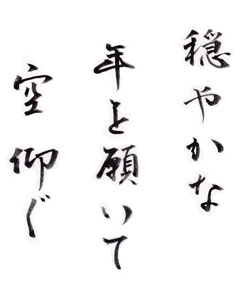 穏やかな
年を願いて
空仰ぐ